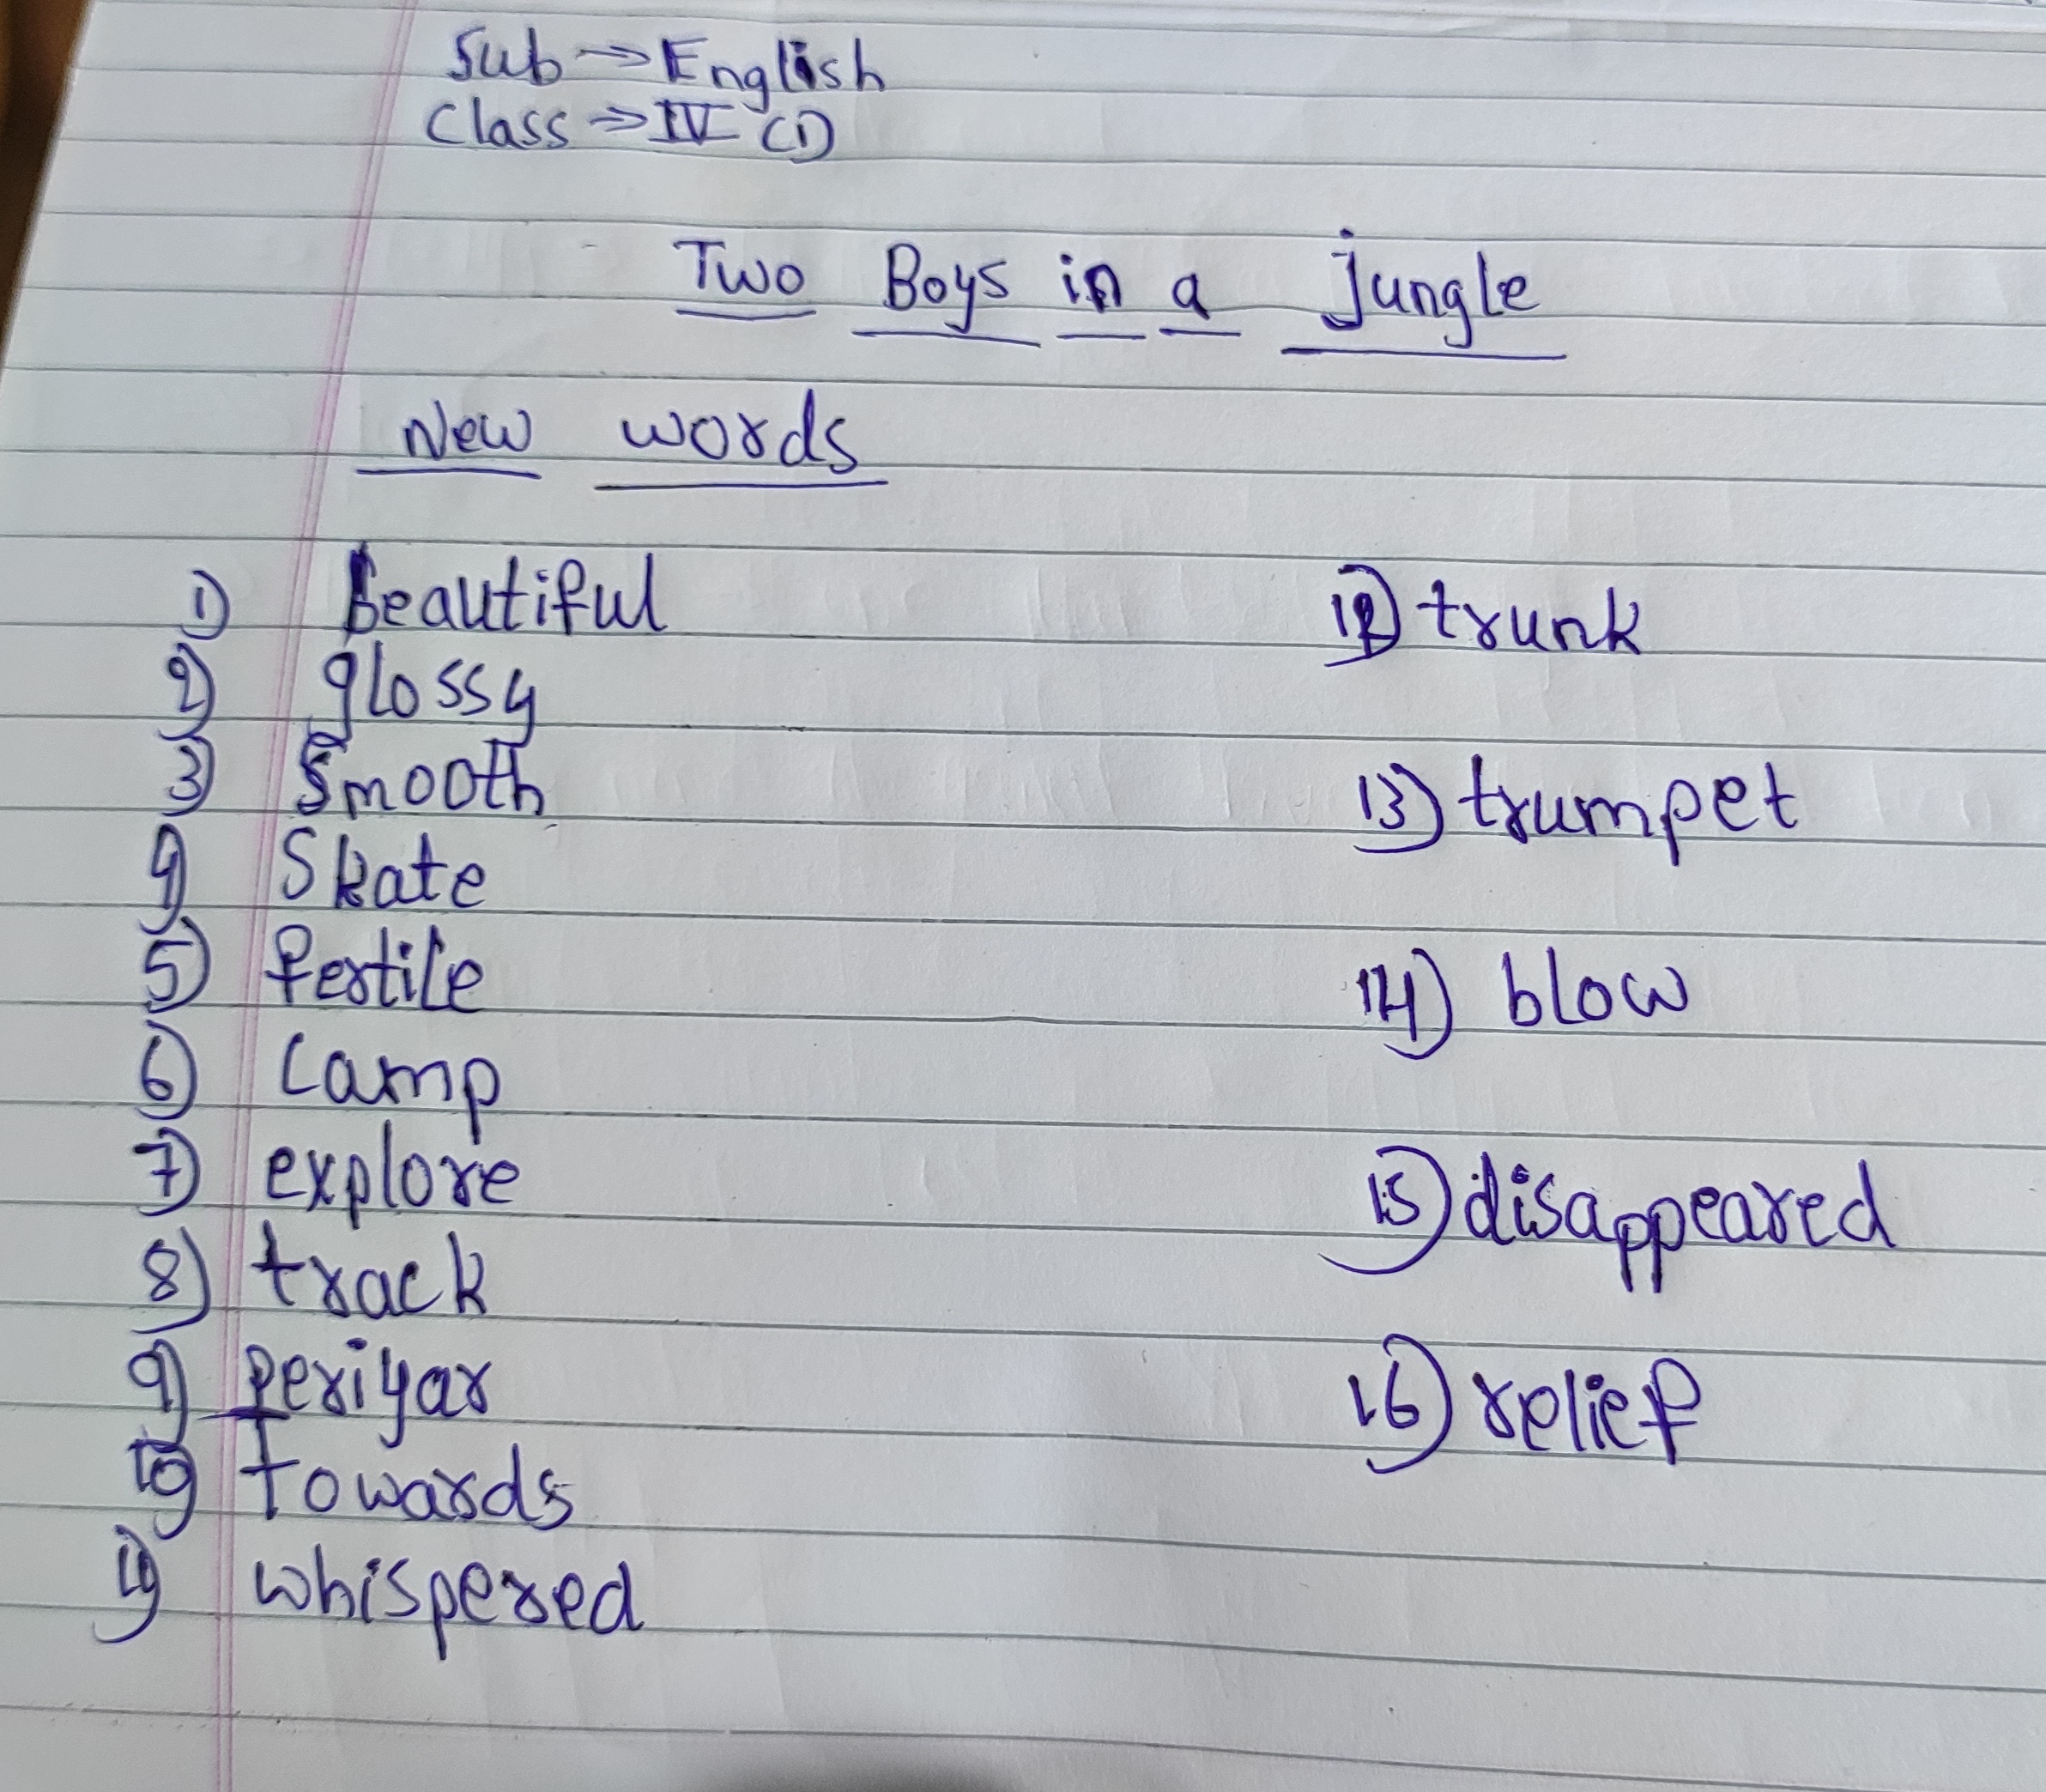 Sub → English
Class → IV (D)
Two Boys in a jungle
New words
1) Beautiful
2) glossy
3) Smooth
4) Skate
5) fertile
6) Camp
7) explore
8) track
9) periyar
10) Towards
11) whispered
12) trunk
13) trumpet
14) blow
15) disappeared
16) relief